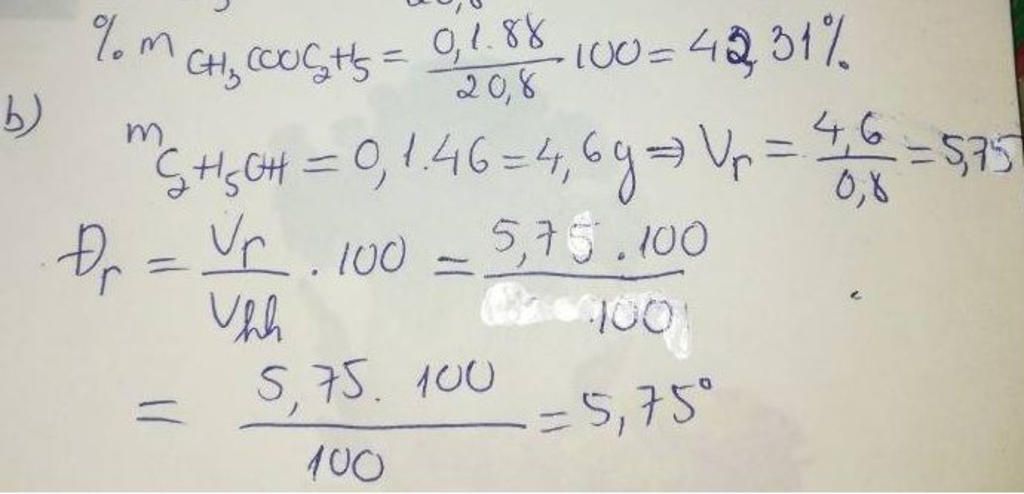 %m CH₃COOC₂H₅ = 0,1.88 / 20,8 . 100 = 42,31%
b)
m C₂H₅OH = 0,1.46 = 4,6g ⇒ Vr = 4,6 / 0,8 = 5,75
Đr = Vr / Vhh . 100 = 5,75 . 100 / 100
= 5,75 . 100 / 100 = 5,75°